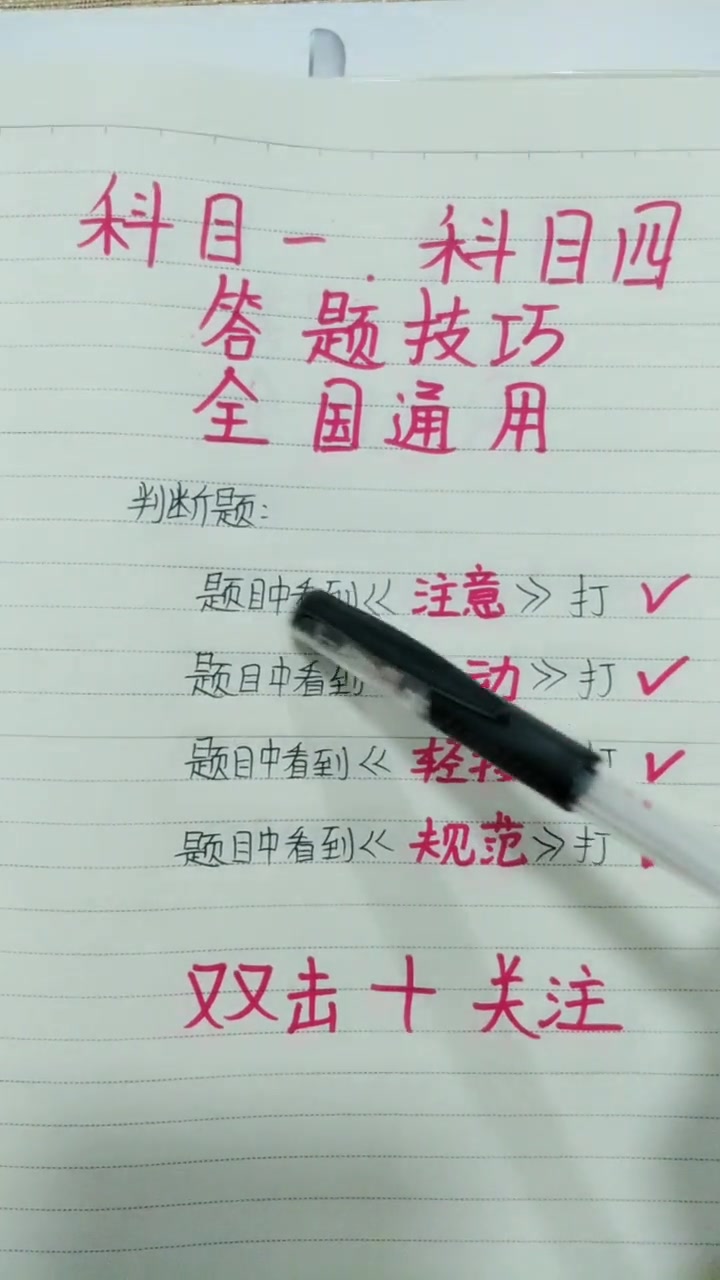 科目一.科目四
答题技巧
全国通用
判断题:
题目中看到《注意》打✓
题目中看到 动》打✓
题目中看到《轻 打✓
题目中看到《规范》打
双击十关注